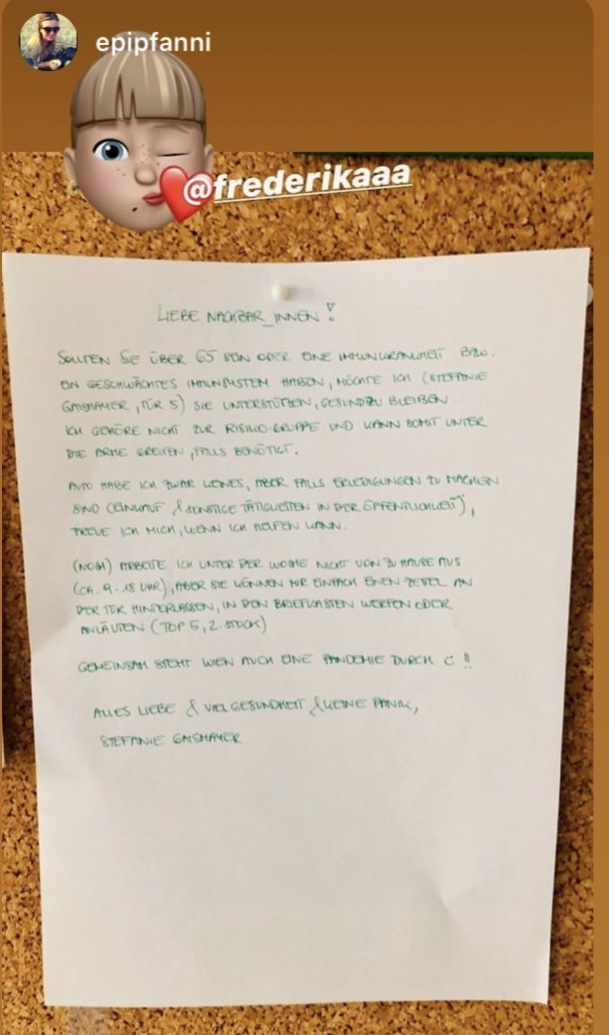 epipfanni
@frederikaaa
LIEBE NACHBAR_INNEN!
SOLLTEN SIE ÜBER 65 SEIN ODER EINE IMMUNKRANKHEIT BZW.
EIN GESCHWÄCHTES IMMUNSYSTEM HABEN, MÖCHTE ICH (STEFANIE
GAISMAYER, TÜR 5) SIE UNTERSTÜTZEN, GESUND ZU BLEIBEN.
ICH GEHÖRE NICHT ZUR RISIKO-GRUPPE UND KANN SOMIT UNTER
DIE ARME GREIFEN, FALLS BENÖTIGT.
AUTO HABE ICH ZWAR KEINES, ABER FALLS ERLEDIGUNGEN ZU MACHEN
SIND (EINKAUF & SONSTIGE TÄTIGKEITEN IN DER ÖFFENTLICHKEIT),
FREUE ICH MICH, WENN ICH HELFEN KANN.
(NOCH) ARBEITE ICH UNTER DER WOCHE NICHT VON ZU HAUSE AUS
(CA. 9-18 UHR), ABER SIE KÖNNEN MIR EINFACH EINEN ZETTEL AN
DER TÜR HINTERLASSEN, IN DEN BRIEFKASTEN WERFEN ODER
ANLÄUTEN (TOP 5, 2. STOCK)
GEMEINSAM STEHT WIEN AUCH EINE PANDEMIE DURCH C !!
ALLES LIEBE & VIEL GESUNDHEIT & KEINE PANIK,
STEFANIE GAISMAYER